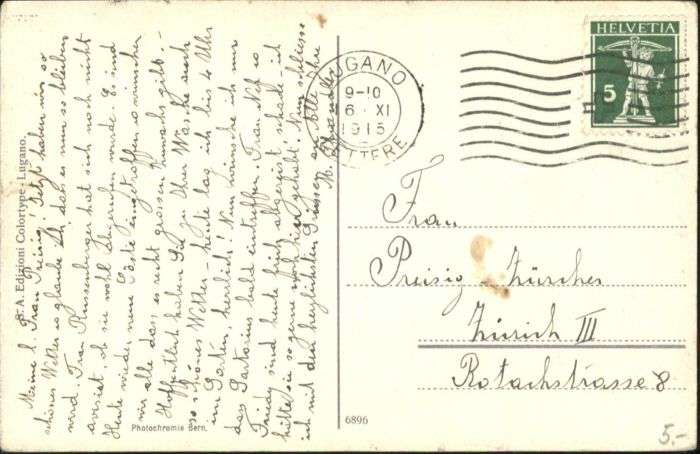 S. A. Edizioni Colortype - Lugano.
Meine l. Frau Preisig! Jetzt haben wir so
schönes Wetter u. glaube ich, dass es nun so bleiben
wird. Frau Russenberger hat sich noch nicht
avisiert, ob sie wohl kommen würde. Es sind
Heute wieder neue Gäste eingetroffen u. wünschen
wir alle das, es recht grossen Zuwachs gebt. -
Hoffentlich haben Sie zu Ihrer Wäsche auch
so schönes Wetter - heute lag ich bis 4 Uhr
im Garten, herrlich! Nun wünsche ich nur
das Sartorius bald eintreffen. Frau Nef u
Fridy sind heute früh abgereist schade - ich
hätte sie so gerne noch hier gehabt. Nun schliesse
ich mit den herzlichsten Grüssen an Alle Ihre
M.
Photochromie Bern.
6896
LUGANO
9-10
16. XI
1915
LETTERE
HELVETIA
5
Frau
Preisig-Zürcher
Zürich III
Rotachstrasse 8
5.-